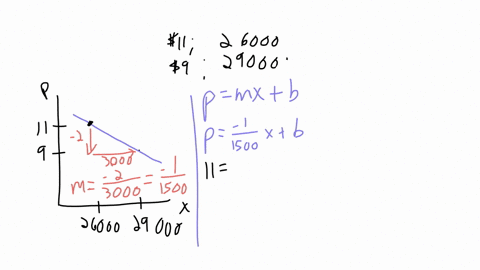 $11; 26000
$9; 29000.
P
11
9
-2
3000
m = -2/3000 = -1/1500
26000 29000
x
p = mx + b
p = -1/1500 x + b
11 =